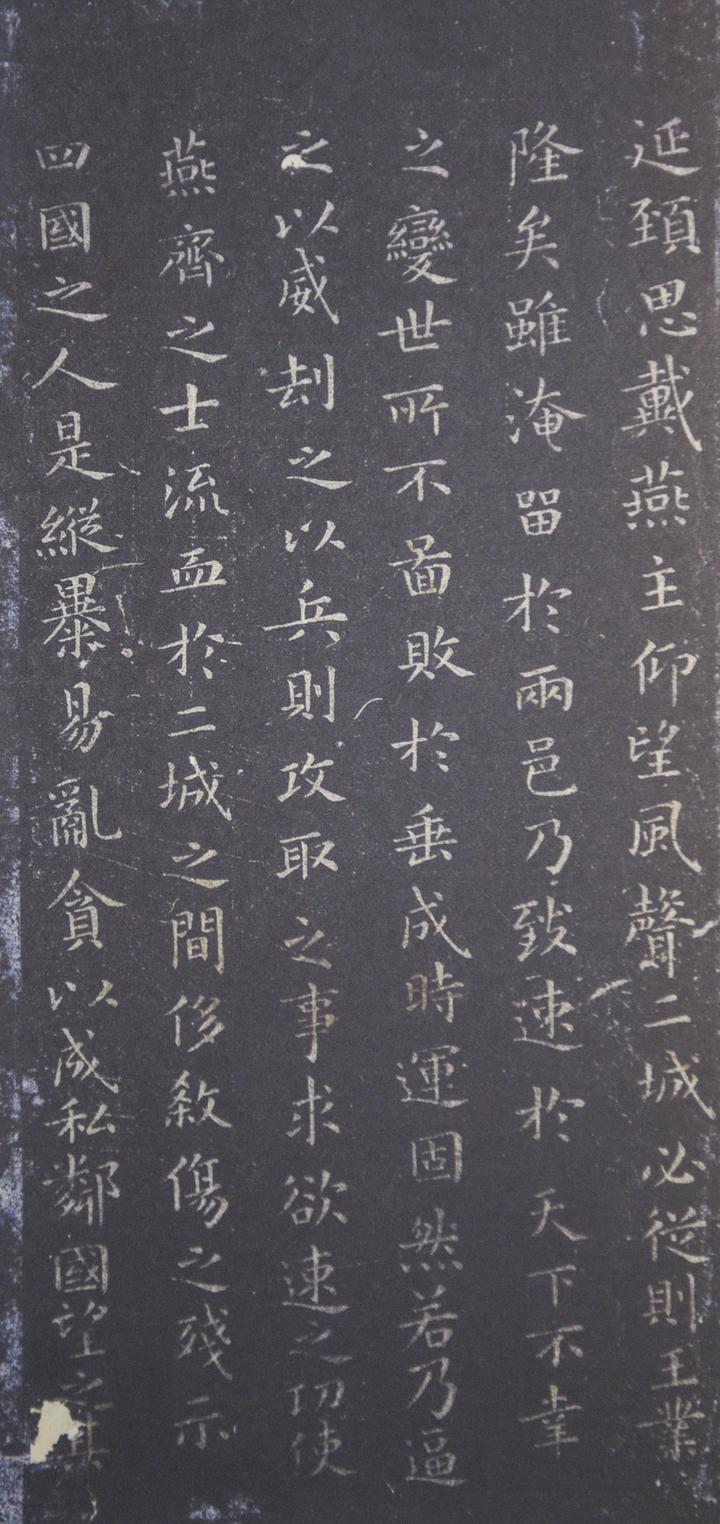 延頸思戴燕主仰望風聲二城必從則王業
隆矣雖淹留於兩邑乃致速於天下不幸
之變世所不啚敗於垂成時運固然若乃逼
之以威劫之以兵則攻取之事求欲速之功使
燕齊之士流血於二城之間侈煞傷之殘示
四國之人是縱暴易亂貪以成私鄰國望之其